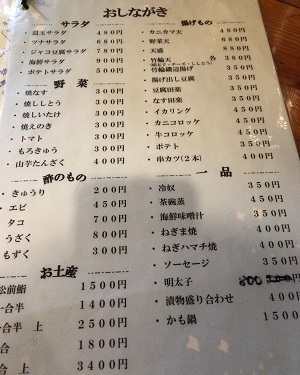 おしながき
サラダ
温玉サラダ 480円
ツナサラダ 480円
ジャコ豆腐サラダ 780円
海鮮サラダ 900円
ポテトサラダ 500円
野菜
焼なす 300円
焼ししとう 300円
焼しいたけ 300円
焼えのき 300円
トマト 300円
もろきゅう 300円
山芋たんざく 400円
酢のもの
きゅうり 200円
エビ 450円
タコ 700円
うざく 800円
もずく 300円
お土産
松前鮨 1500円
一合半 1400円
一合半 上 2500円
合 1800円
合 上 3400円
揚げもの
カニカマ天 400円
野菜天 680円
天盛
竹輪天 各380円
竹輪磯辺揚げ 350円
揚げ出し豆腐 350円
豆腐田楽 350円
なす田楽 350円
イカリング 450円
カニコロッケ 450円
牛コロッケ 450円
ポテト 350円
串カツ(2本) 400円
一品
冷奴 350円
茶碗蒸 450円
海鮮味噌汁 350円
ねぎま焼 400円
ねぎハマチ焼 400円
ソーセージ 350円
明太子
漬物盛り合わせ 400円
かも鍋 1500円